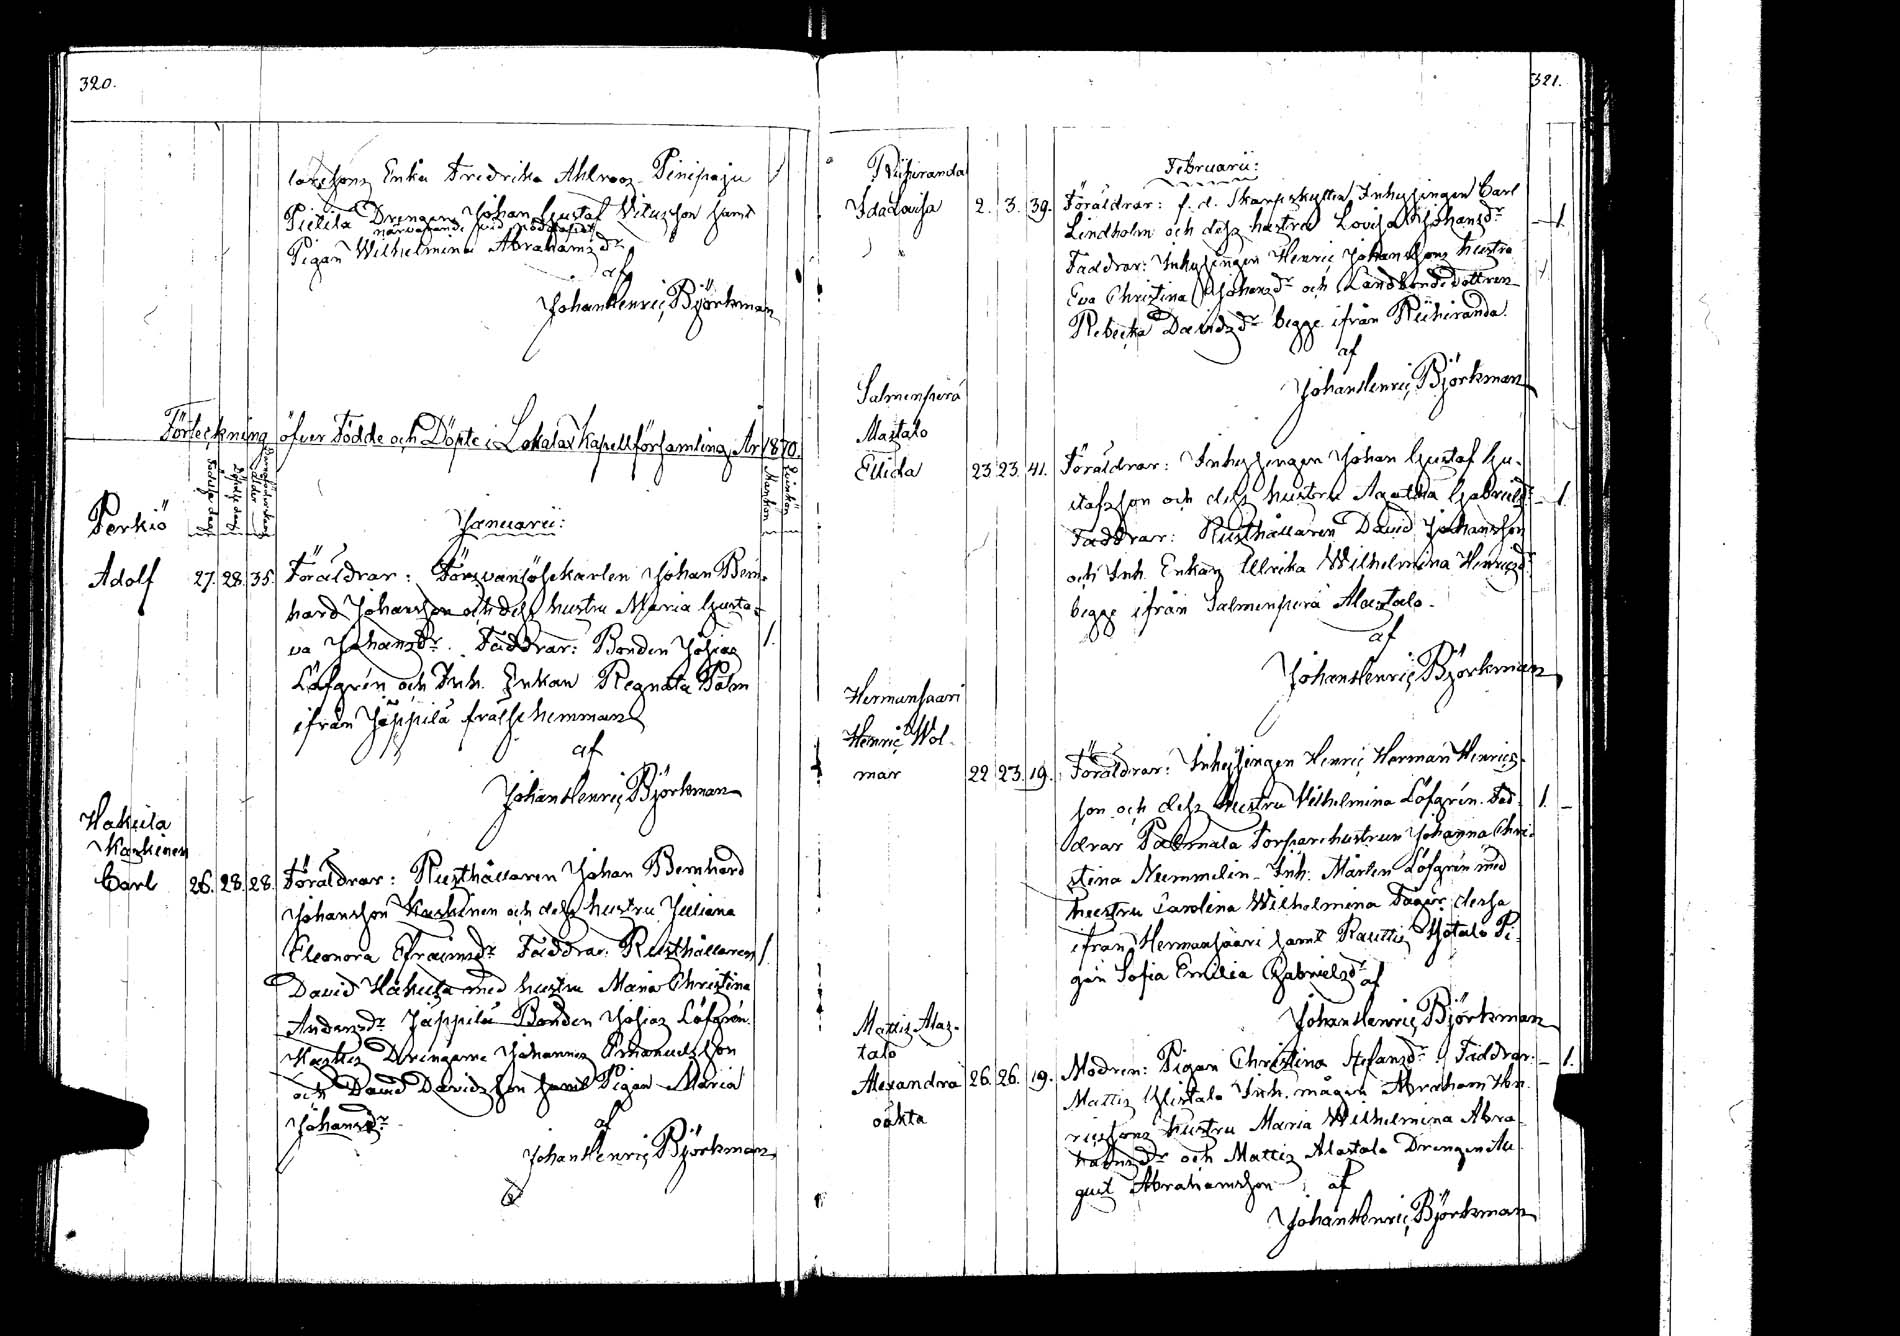 320.
larssons Enka Fredrika Ahlroos Pinipaju
Pietilä Drengen Johan Gustaf Vitusson samt
närvarande vid nöddopet
Pigan Wilhelmina Abrahamsdr
af
Johan Henric Björkman
Förteckning öfver Födde och Döpte i Lokalax Kapellförsamling År 1870.
Födelse dag
Döpelse dag
Barnaföderskans ålder
Mankön
Qvinkön
Januarii:
Perkiö
Adolf 27. 28. 35. Föräldrar: Johan Bern-
hard Johansson och dess hustru Maria Gusta-
va Johansdr. Faddrar: Bonden Josias 1.
Löfgrén och Inh. Enkan Regnata Palm
ifrån Jäppilä frälsehemman
af
Johan Henric Björkman
Hakula
Kaskinen
Carl 26. 28. 28. Föräldrar: Rusthållaren Johan Bernhard
Johansson Kaskinen och dess hustru Juliana
Eleonora Efraimsdr Faddrar: Rusthållaren 1.
David Hakula med hustru Maria Christina
Andersdr Jäppilä Bonden Josias Löfgrén.
Drengarne Johannes Emanuelsson
och David Davidsson samt Pigan Maria
Johansdr
af
Johan Henric Björkman
321.
Februarii:
Riihiranda
Ida Lovisa 2. 3. 39. Föräldrar: f. d. Skarpskytten Inhysingen Carl
Lindholm och dess hustru Lovisa Johansdr – 1.
Faddrar: Inhysingen Henric Johanssons hustru
Eva Christina Johansdr och Landbondedottren
Rebecka Davidsdr begge ifrån Riihiranda.
af
Johan Henric Björkman
Salmenperä
Alastalo
Elida 23. 23. 41. Föräldrar: Inhysingen Johan Gustaf Gu-
stafsson och dess hustru Agatha Gabrielsdr – 1.
Faddrar: Rusthållaren David Johansson
och Inh. Enkan Ulrika Wilhelmina Henricsdr
begge ifrån Salmenperä Alastalo.
af
Johan Henric Björkman
Hermansaari
Henric Wol-
mar 22 23. 19. Föräldrar: Inhysingen Henric Herman Henrics-
son och dess hustru Vilhelmina Löfgrén. Fad- 1. –
drar Palmala Torparehustrun Johanna Chri-
stina Nummelin – Inh. Mårten Löfgrén med
hustru Carolina Wilhelmina Fager dessa
ifrån Hermansaari samt Rauttis Yötalo Pi-
gan Sofia Emilia Gabrielsdr af
Johan Henric Björkman
Mattis Alas-
talo
Alexandra 26. 26. 19. Modren: Pigan Christina Stefansdr Faddrar: – 1.
oäkta
Mattis Ylistalo Inh. mågen Abraham Hen-
ricssons hustru Maria Wilhelmina Abra-
hamsdr och Mattis Alastalo Drengen Au-
gust Abrahamsson af
Johan Henric Björkman